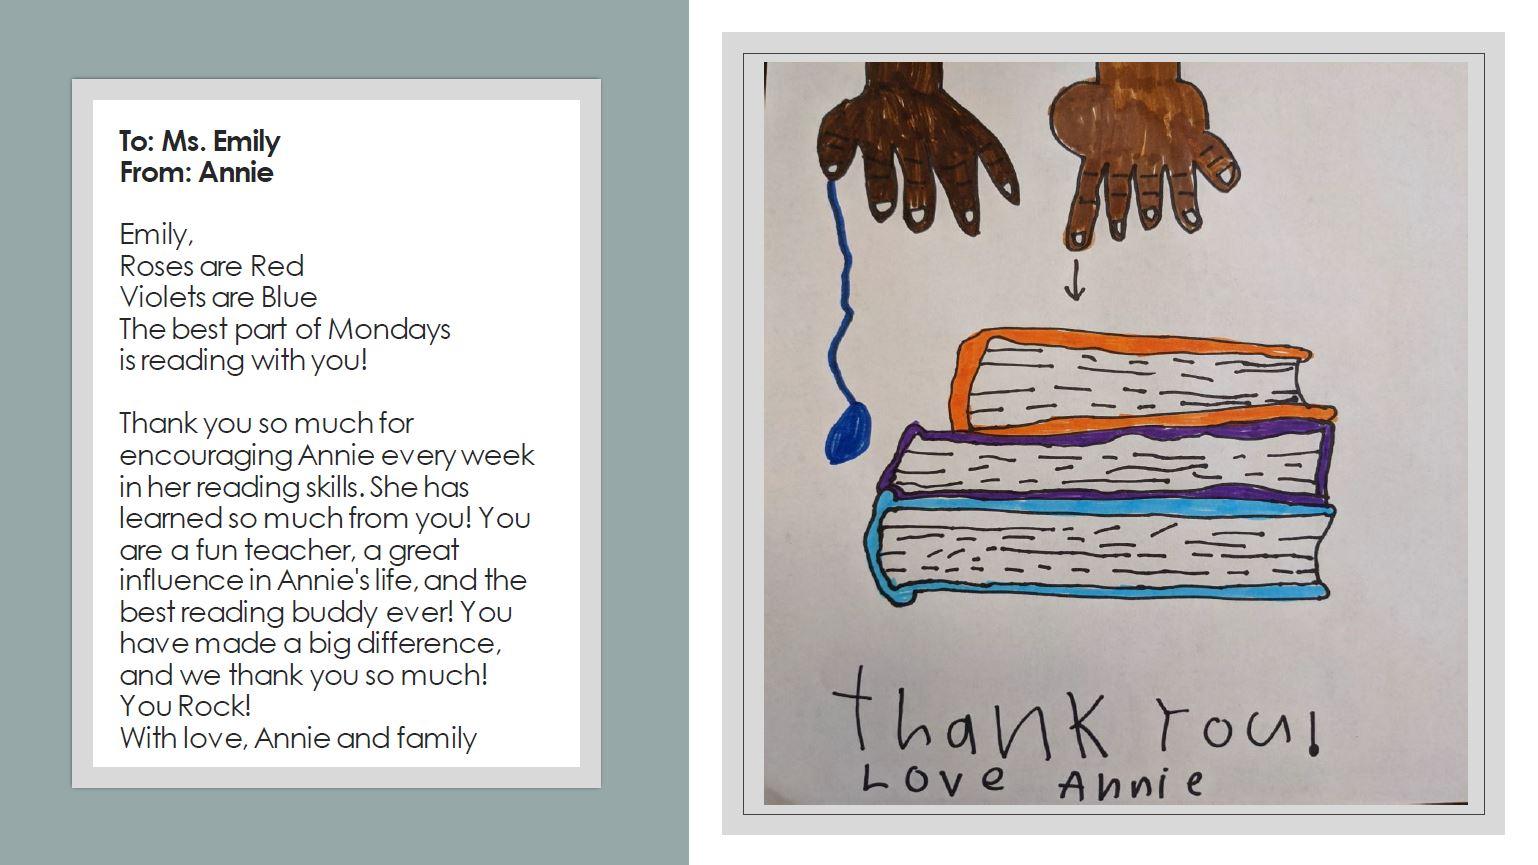 To: Ms. Emily
From: Annie
Emily,
Roses are Red
Violets are Blue
The best part of Mondays
is reading with you!
Thank you so much for
encouraging Annie every week
in her reading skills. She has
learned so much from you! You
are a fun teacher, a great
influence in Annie's life, and the
best reading buddy ever! You
have made a big difference,
and we thank you so much!
You Rock!
With love, Annie and family
Thank You!
Love Annie